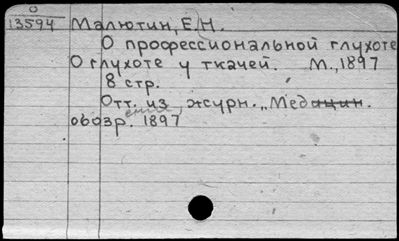 О
13594 Малютин, Е.Н.
О профессиональной глухоте
О глухоте у ткачей. М., 1897
8 стр.
Отт. из журн. „Медицин.
обозр. 1897